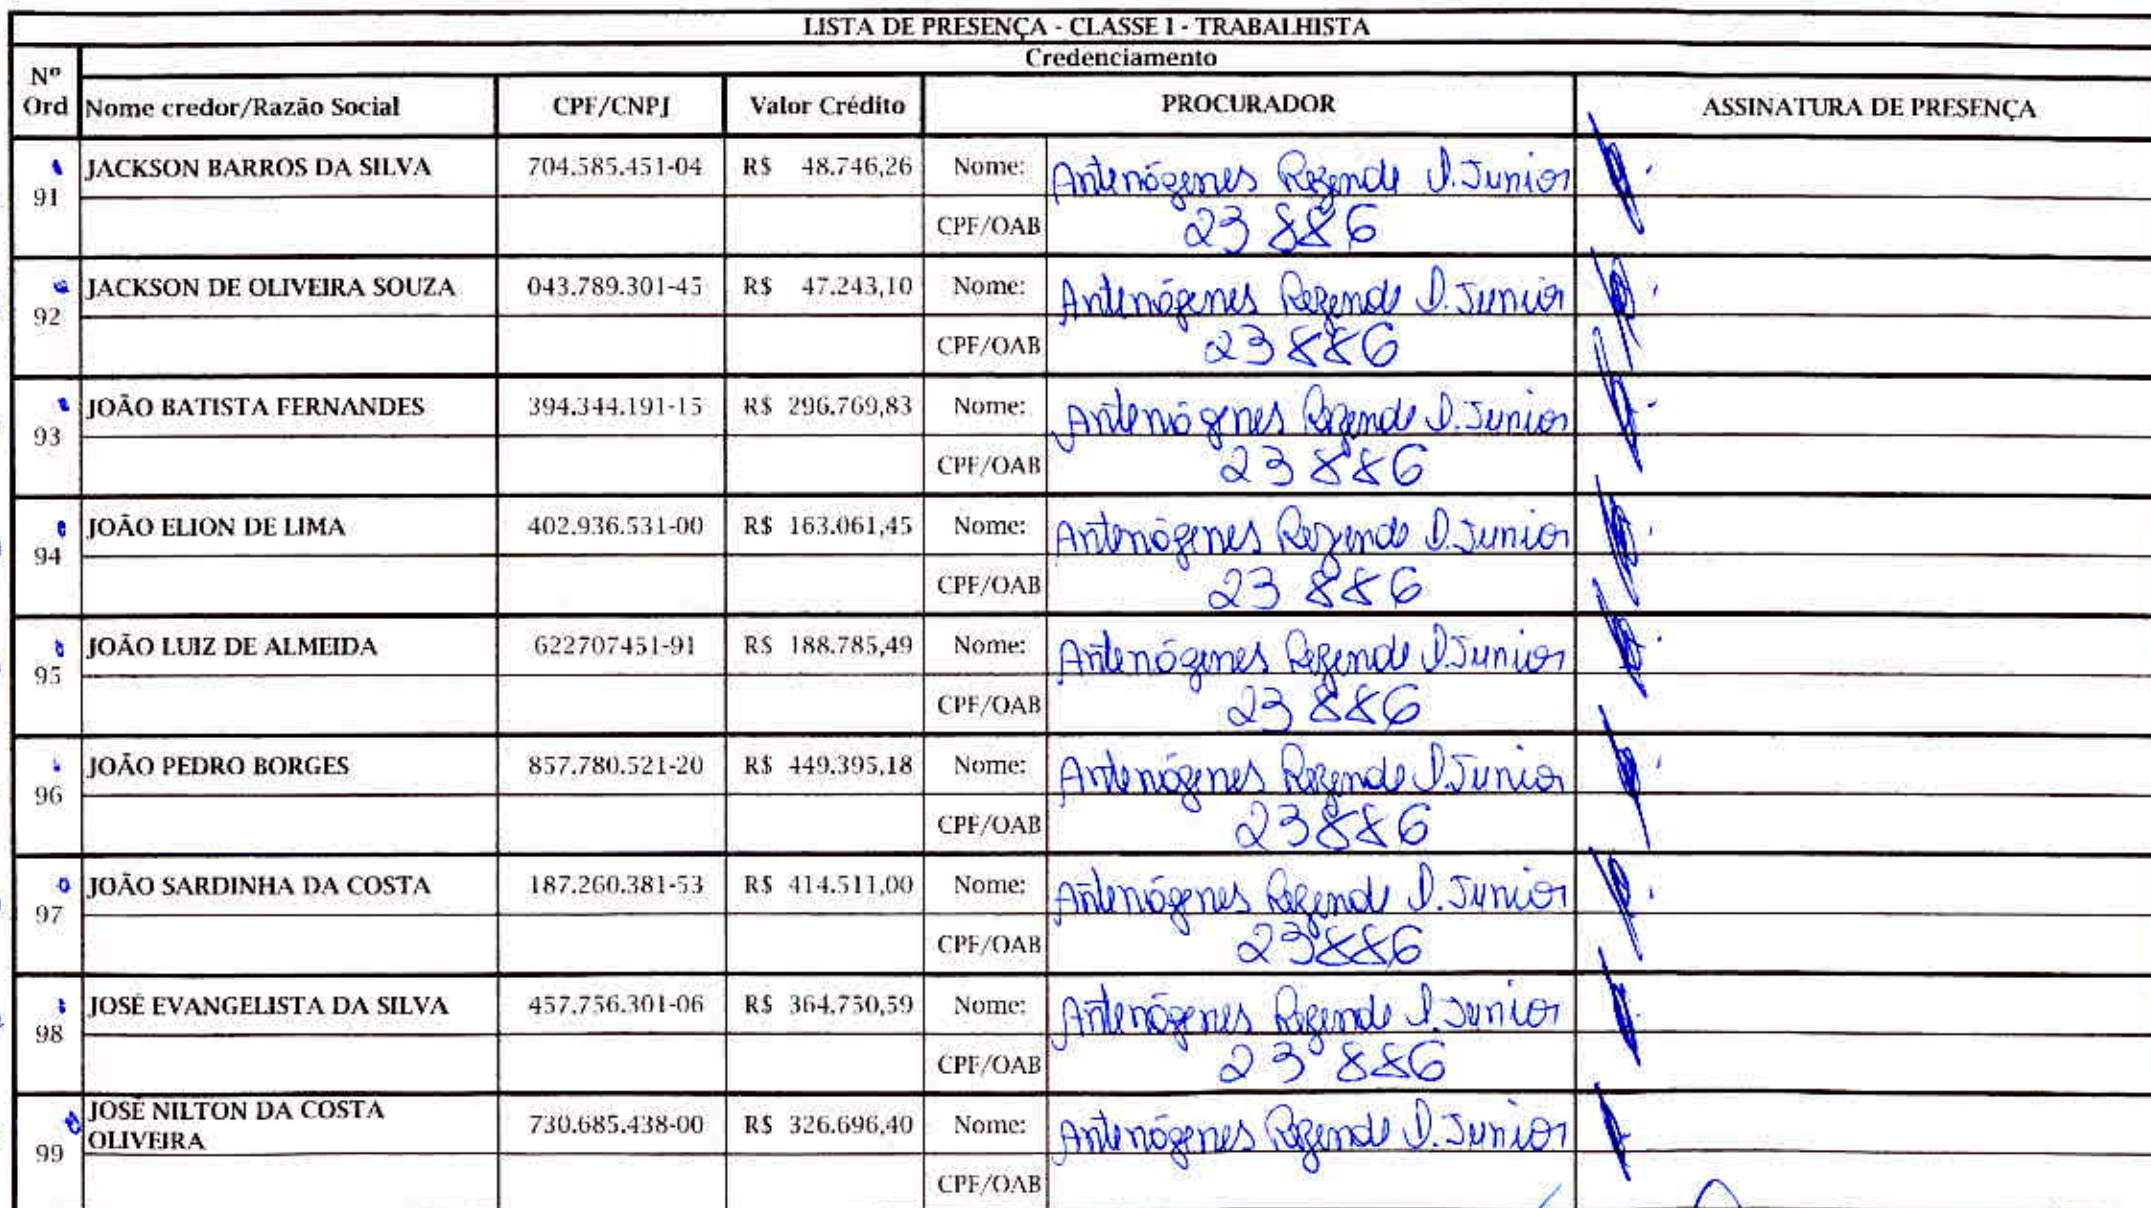 LISTA DE PRESENÇA - CLASSE I - TRABALHISTA
Credenciamento
Nº Ord Nome credor/Razão Social CPF/CNPJ Valor Crédito PROCURADOR ASSINATURA DE PRESENÇA
91 JACKSON BARROS DA SILVA 704.585.451-04 R$ 48.746,26 Nome: Antenógenes Rezende D. Junior
CPF/OAB 23886
92 JACKSON DE OLIVEIRA SOUZA 043.789.301-45 R$ 47.243,10 Nome: Antenógenes Rezende D. Junior
CPF/OAB 23886
93 JOÃO BATISTA FERNANDES 394.344.191-15 R$ 296.769,83 Nome: Antenógenes Rezende D. Junior
CPF/OAB 23886
94 JOÃO ELION DE LIMA 402.936.531-00 R$ 163.061,45 Nome: Antenógenes Rezende D. Junior
CPF/OAB 23886
95 JOÃO LUIZ DE ALMEIDA 622707451-91 R$ 188.785,49 Nome: Antenógenes Rezende D. Junior
CPF/OAB 23886
96 JOÃO PEDRO BORGES 857.780.521-20 R$ 449.395,18 Nome: Antenógenes Rezende D. Junior
CPF/OAB 23886
97 JOÃO SARDINHA DA COSTA 187.260.381-53 R$ 414.511,00 Nome: Antenógenes Rezende D. Junior
CPF/OAB 23886
98 JOSÉ EVANGELISTA DA SILVA 457.756.301-06 R$ 364.750,59 Nome: Antenógenes Rezende D. Junior
CPF/OAB 23886
99 JOSÉ NILTON DA COSTA OLIVEIRA 730.685.438-00 R$ 326.696,40 Nome: Antenógenes Rezende D. Junior
CPF/OAB